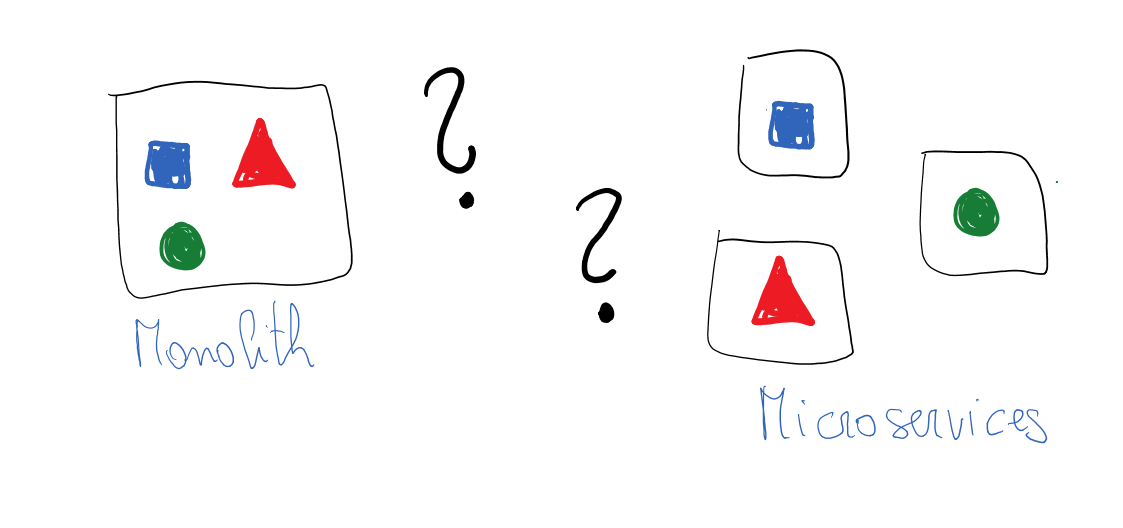 ?
?
Monolith
Microservices